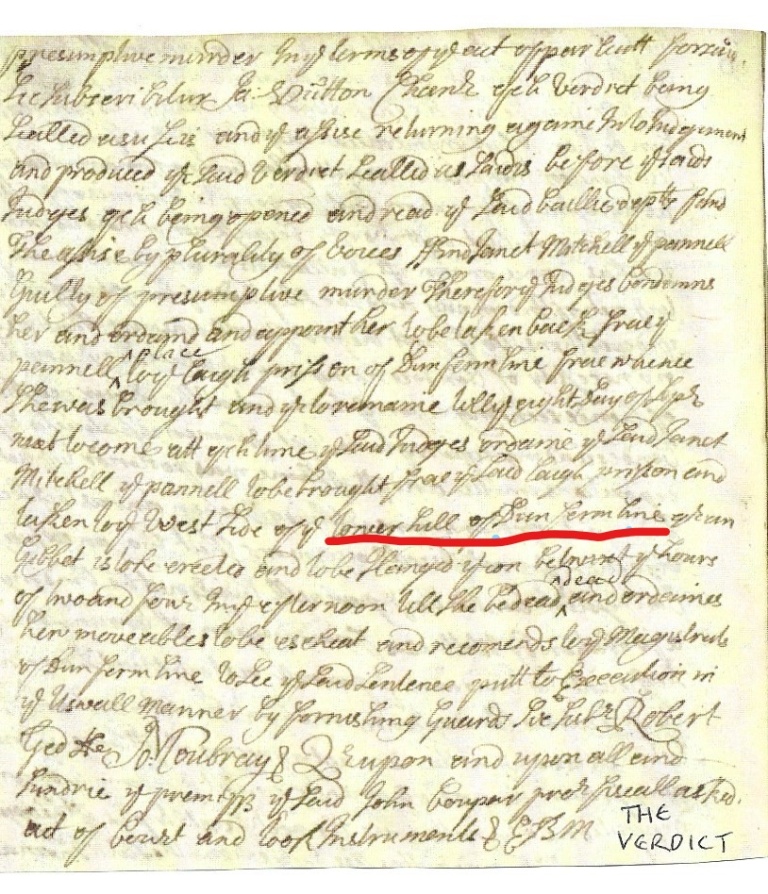 presumptive murder In ye terms of ye act of parliatt
Sic subscribitur Ja: Dutton Chanslr qch verdict being
sealled as su and ye assise returning againe Into Judgement
and produced ye said verdict sealled as said is before ye saids
Judges qch being opened and read ye said baillie depts
The assise by plurality of voices ffind Janet Mitchell ye pannell
Guilty of presumptive murder Therefor ye Judges condemns
her and ordaind and appoint her to be taken back frae ye
place
pannell ^ to ye laigh prisson of Dunfermline frae whence
She was brought and yr to remaine till ye eight day of
next to come att qch time ye said Judges ordaine ye said Janet
Mitchell ye pannell to be brought frae ye said laigh prisson and
taken to ye West side of ye Witch hill of Dunfermline qr an
Gibbet is to be erected and to be Hanged yron betwixt ye hours
dead
of two and four In ye efternoon till she be dead ^ and ordaines
her moveables to be escheat and recomends to ye Magistrats
of Dunfermline to see ye said sentence putt to Execution in
ye Uswall manner by furnishing Guards Sic subr Robert
Ged Jo: Moubray & Qrupon and upon all and
sundrie ye premiss ye said John Couper pror fiscall asked
act of court and took Instruments &
THE
VERDICT